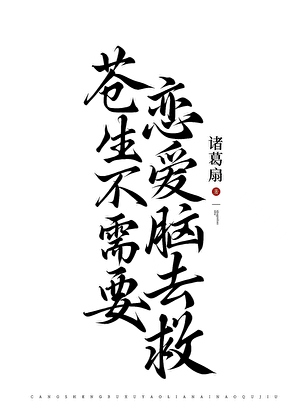 苍生不需要
恋爱脑去救
诸葛扇
著
CANGSHENGBUXUYAOLIANAINAOQUJIU